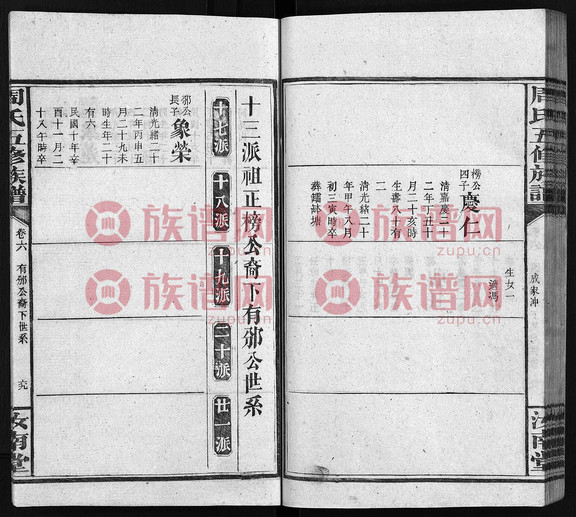 周氏五修族譜
汝南堂
成家冲
生女一
適馮
榜公
四子
慶仁
清嘉慶二十
二年丁丑十
月二十亥時
生壽八十有
八
清光緒二十
年甲午八月
初三寅時卒
葬鐳缽塘
十三派祖正榜公裔下有邠公世系
十七派
十八派
十九派
二十派
廿一派
邠公
長子
象榮
清光緒二十
二年丙申五
月二十九未
時生年二十
有六
民國十年辛
酉十一月二
十八午時卒
周氏五修族譜
卷六
有邠公裔下世系
六九
汝南堂
族谱网
zupu.cn
族谱网
zupu.cn
族谱网
zupu.cn
族谱网
zupu.cn